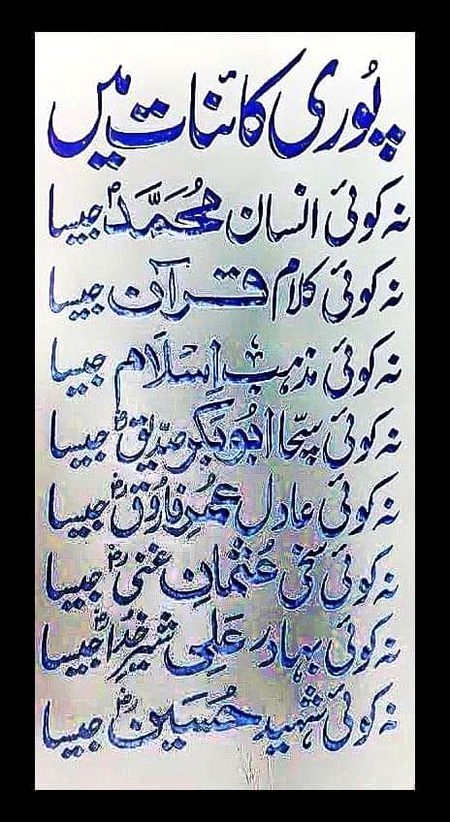 پُوری کائنات میں
نہ کوئی انسان مُحَمَّدؐ جیسا
نہ کوئی کلام قرآن جیسا
نہ کوئی مذہب اِسلَام جیسا
نہ کوئی سچّا ابُوبکر صدیقؓ جیسا
نہ کوئی عادل عمرِ فاروُقؓ جیسا
نہ کوئی سخی عُثمانِ غنیؓ جیسا
نہ کوئی بہادر عَلی شیرِ خُداؓ جیسا
نہ کوئی شہید حُسَینؓ جیسا